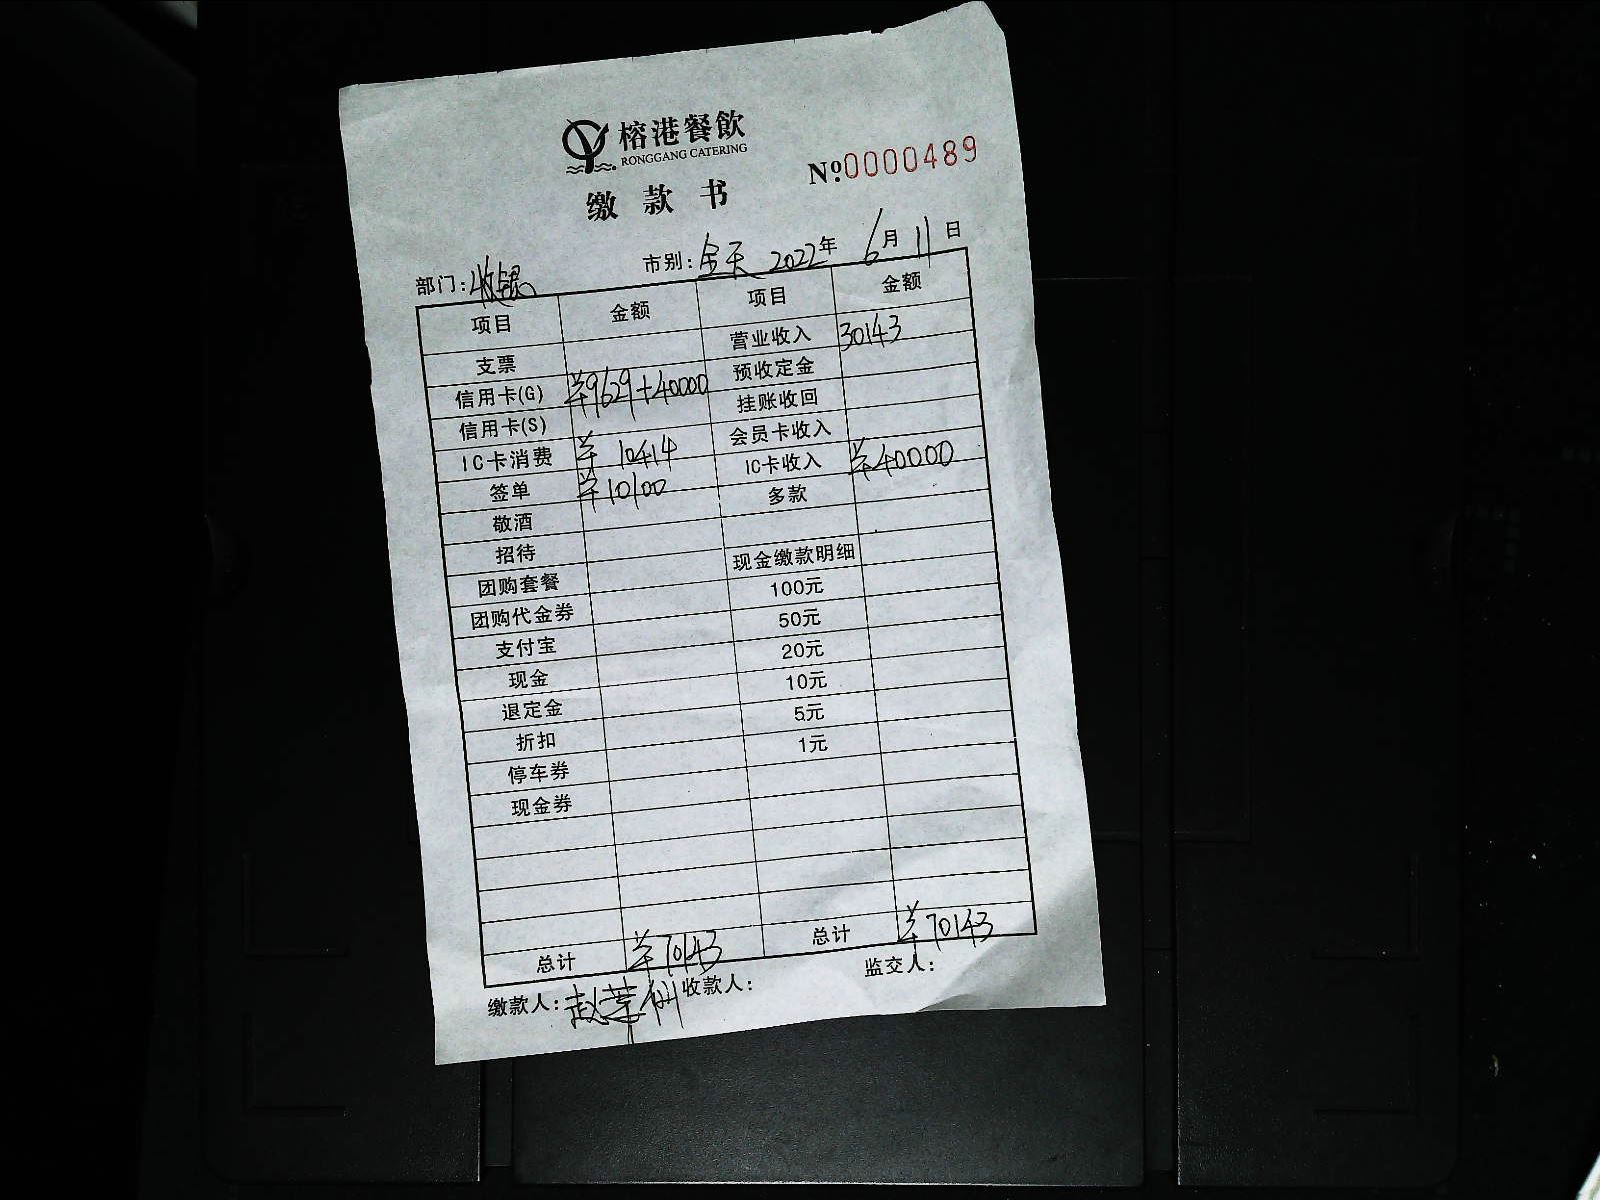 榕港餐飲
RONGGANG CATERING
缴款书
Nº0000489
部门:收银 市别:全天 2022年 6月 11日
项目 金额 项目 金额
支票 营业收入 30143
信用卡(G) ¥9629+40000 预收定金
信用卡(S) 挂账收回
IC卡消费 ¥10414 会员卡收入
签单 ¥10100 IC卡收入 ¥40000
敬酒 多款
招待
团购套餐 现金缴款明细
团购代金券 100元
支付宝 50元
现金 20元
退定金 10元
折扣 5元
停车券 1元
现金券
总计 ¥70143 总计 ¥70143
缴款人: 收款人: 监交人: